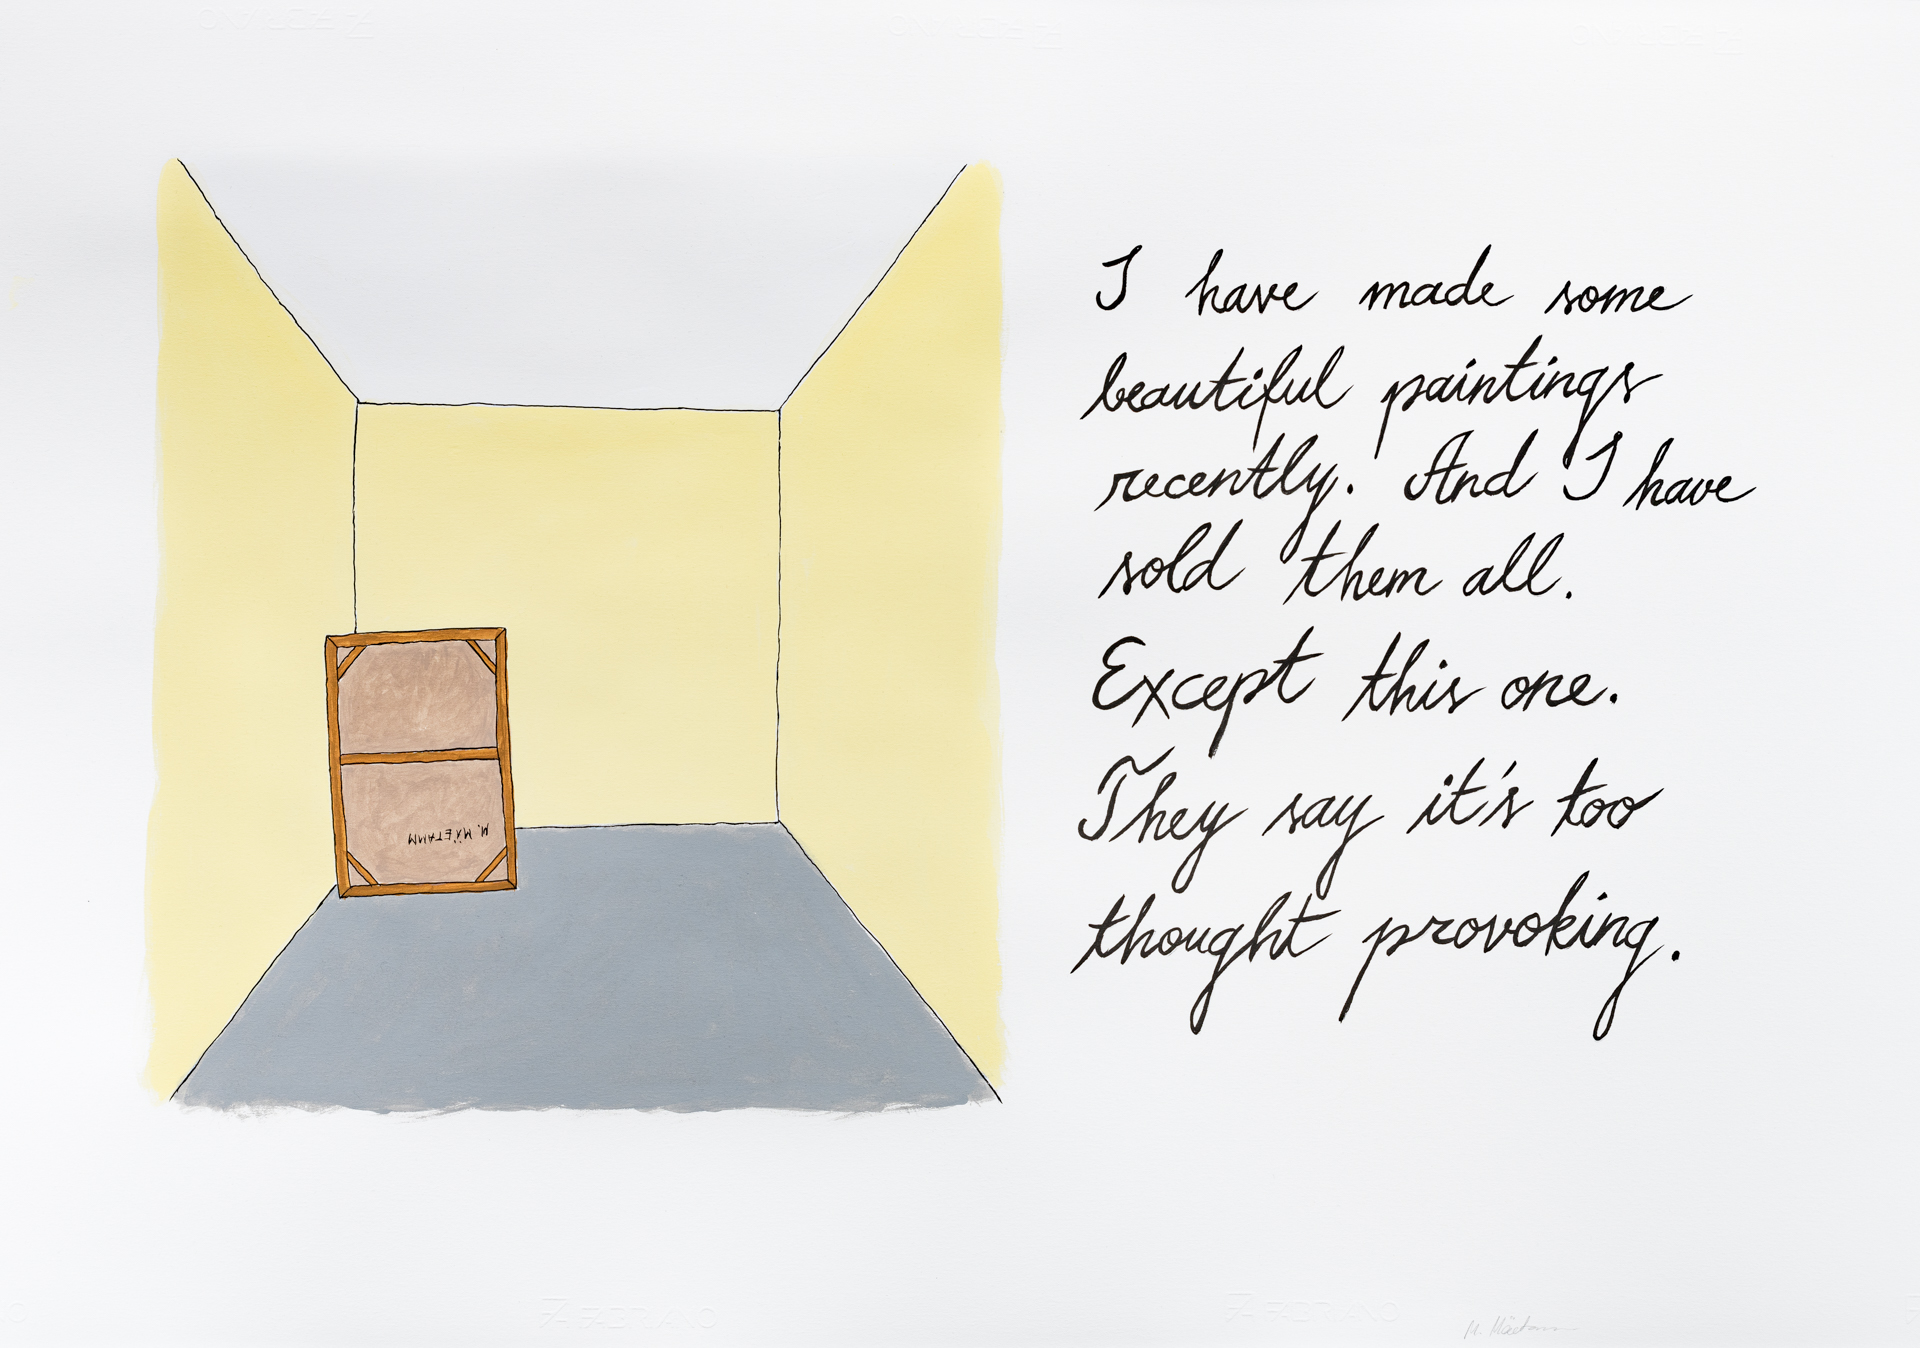 I have made some
beautiful paintings
recently. And I have
sold them all.
Except this one.
They say it's too
thought provoking.
M. MÄETAMM
FABRIANO
FABRIANO
FABRIANO
FABRIANO
FABRIANO
M. Mäetamm